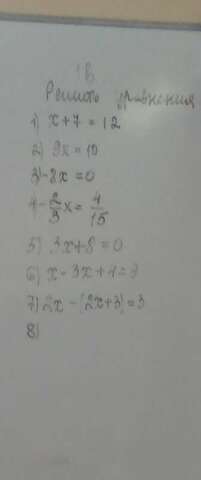 1В
Решить уравнения
1) x+7=12
2) 9x=10
3) -8x=0
4 -2/3x=4/15
5) 3x+8=0
6) x-3x+4=3
7) 2x-(2x+3)=3
8)